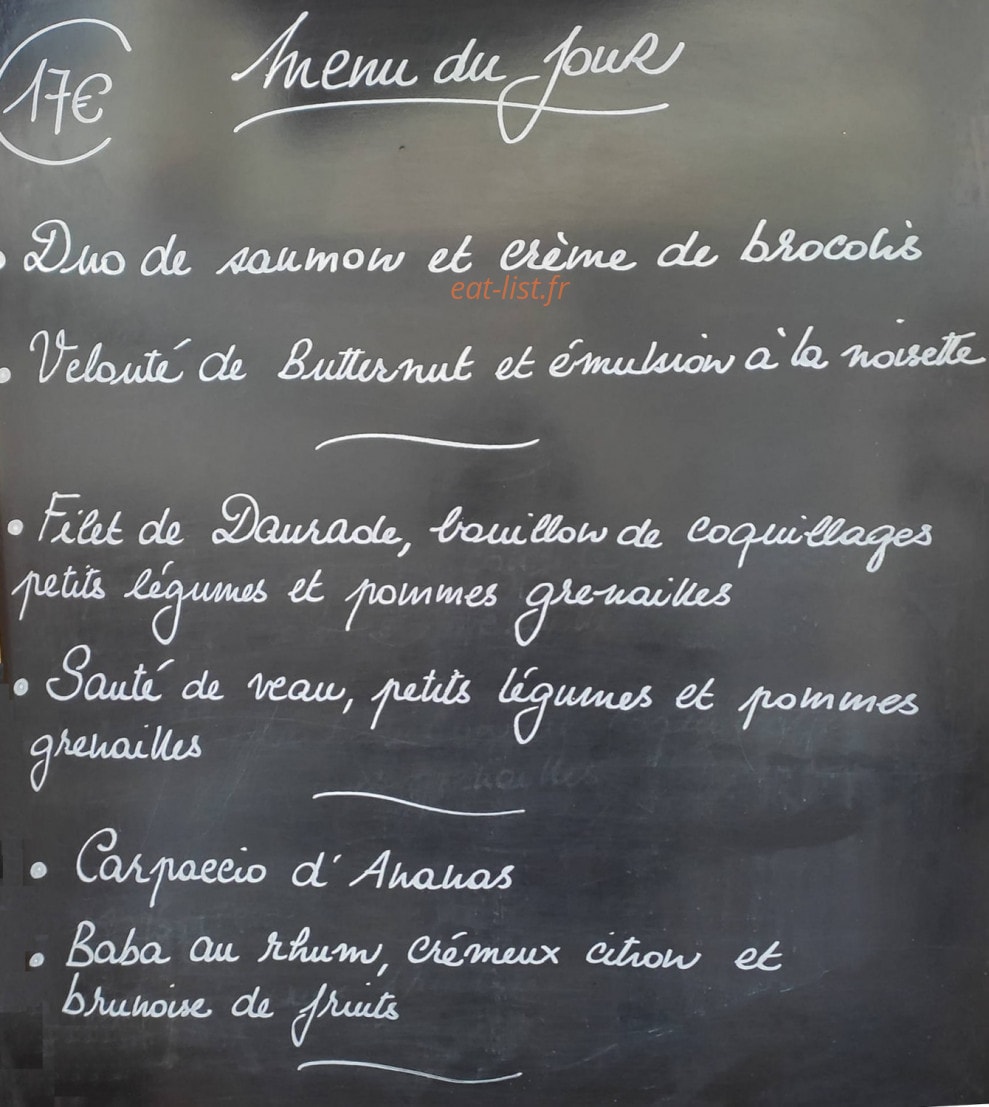 17€
Menu du jour
• Duo de saumon et crème de brocolis
eat-list.fr
• Velouté de Butternut et émulsion à la noisette
• Filet de Daurade, bouillon de coquillages
petits légumes et pommes grenailles
• Sauté de veau, petits légumes et pommes
grenailles
• Carpaccio d'Ananas
• Baba au rhum, crémeux citron et
brunoise de fruits